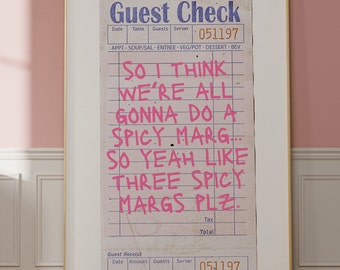 Guest Check
Date Table Guests Server
051197
APPT - SOUP/SAL - ENTREE - VEG/POT - DESSERT - BEV
SO I THINK
WE'RE ALL
GONNA DO A
SPICY MARG...
SO YEAH LIKE
THREE SPICY
MARGS PLZ.
Tax
Total
Guest Receipt
Date Amount Guests Server
051197